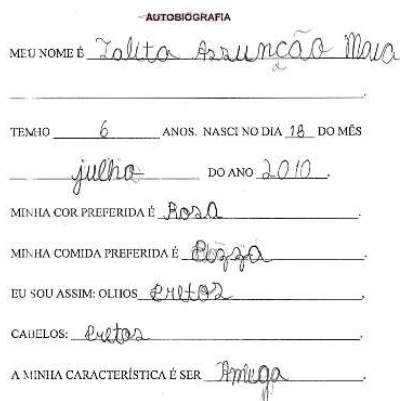 AUTOBIOGRAFIA
MEU NOME É Talita Assunção Maia
TENHO 6 ANOS. NASCI NO DIA 18 DO MÊS
julho DO ANO 2010.
MINHA COR PREFERIDA É Rosa.
MINHA COMIDA PREFERIDA É Pizza.
EU SOU ASSIM: OLHOS Pretos.
CABELOS: Pretos.
A MINHA CARACTERÍSTICA É SER Amiga.